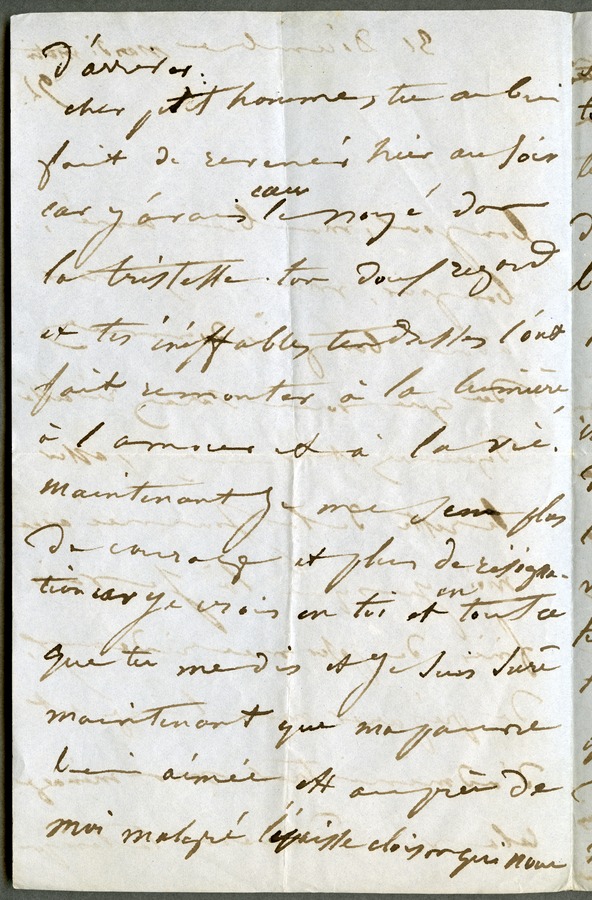 d'arriver.
cher petit homme, tu as bien
fait de revenir hier au soir
car j'avais le cœur noyé dans
la tristesse. ton doux regard
et tes ineffables tendresses l'ont
fait remonter à la lumière,
à l'amour et à la vie.
maintenant je me sens plus
de courage et plus de résigna-
tion car je crois en toi et en tout ce
que tu me dis et je suis sûre
maintenant que ma pauvre
bien aimée est auprès de
moi malgré l'épaisse cloison qui nous